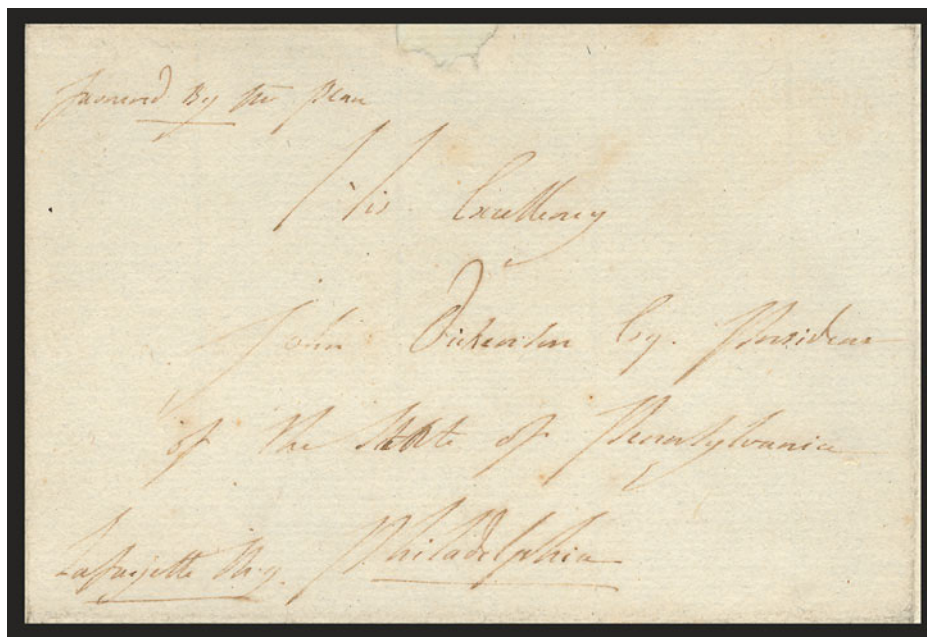 favoured By Mr
His Excellency
John Dickenson Esq. President
of the State of Pennsylvania
Lafayette M.g. Philadelphia